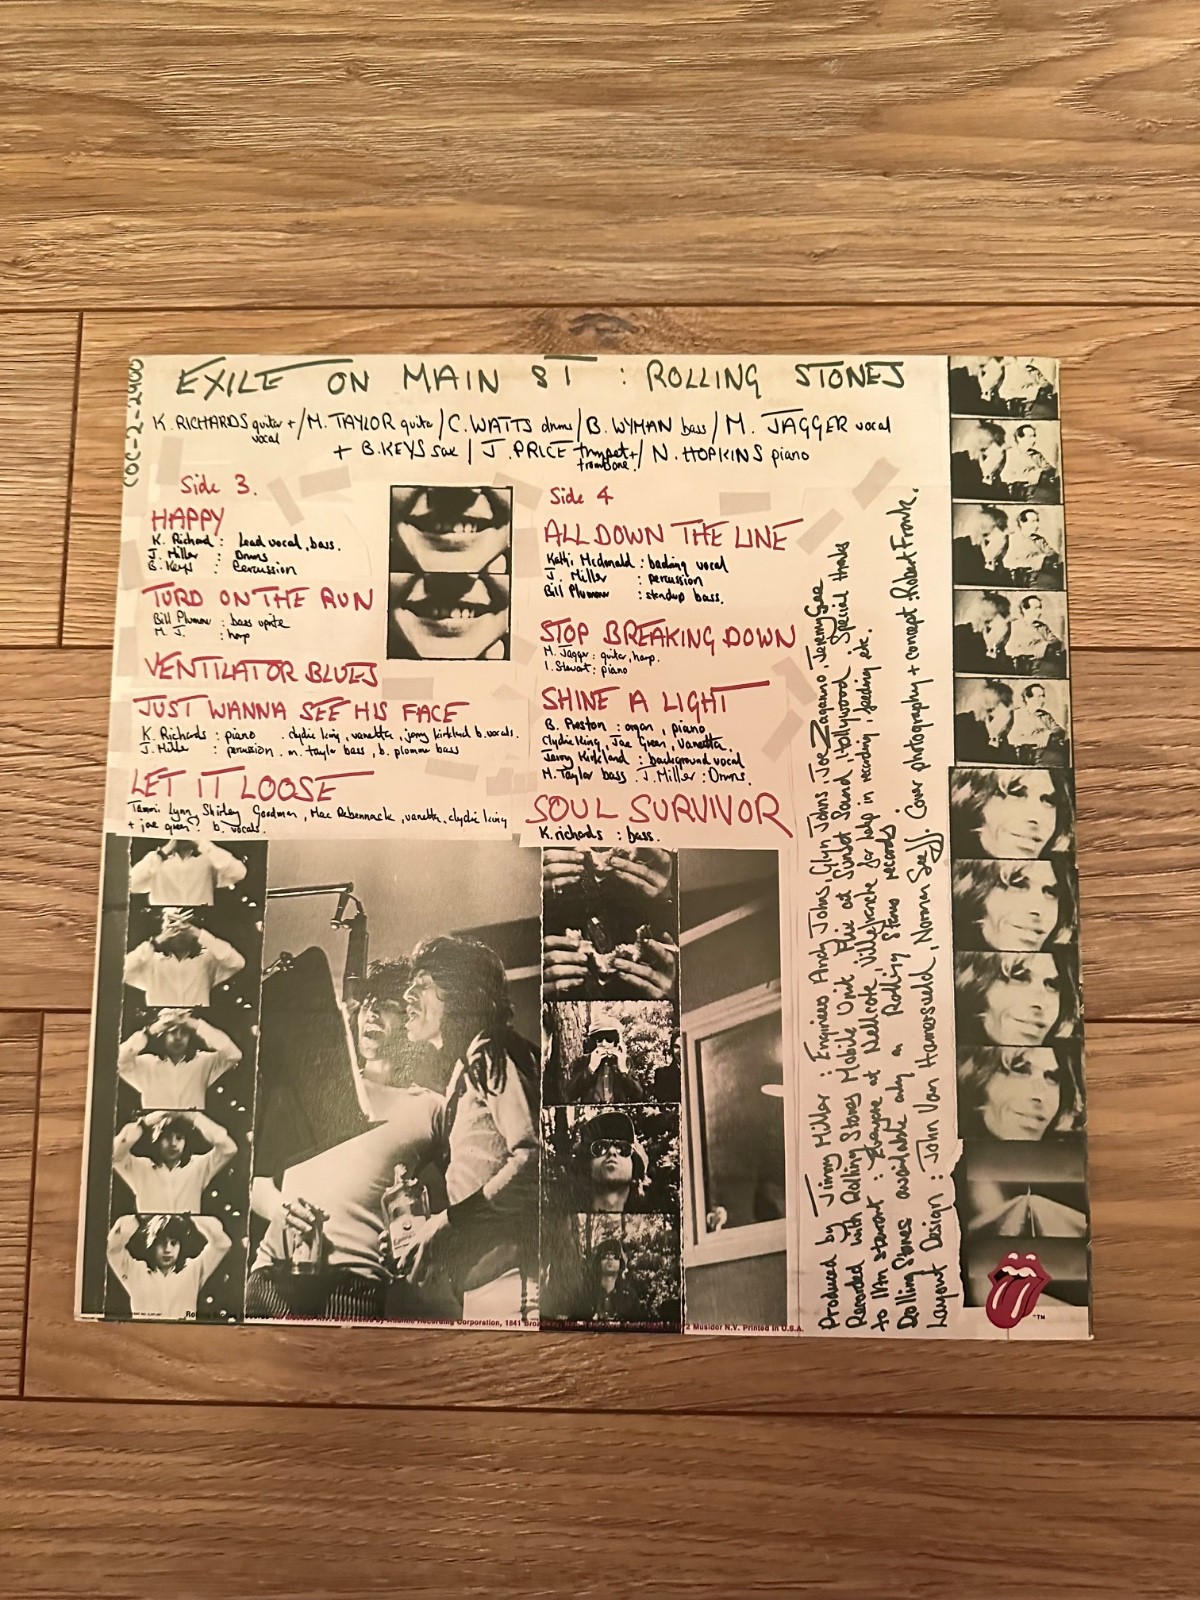 COC-2-2900
EXILE ON MAIN ST : ROLLING STONES
K. RICHARDS guitar + vocal / M. TAYLOR guitar / C. WATTS drums / B. WYMAN bass / M. JAGGER vocal
+ B. KEYS sax / J. PRICE trumpet + trombone / N. HOPKINS piano
Side 3.
HAPPY
K. Richard : Lead vocal, bass.
J. Miller : Drums
B. Keys : Percussion
TURD ON THE RUN
Bill Plummer : bass uprite
M. J. : harp
VENTILATOR BLUES
JUST WANNA SEE HIS FACE
K. Richards : piano . clydie king, vanetta, jerry kirkland b. vocals.
J. Miller : percussion . m. taylor bass, b. plummer bass
LET IT LOOSE
Tammi Lynn, Shirley Goodman, Mac Rebennack, vanetta, clydie king
+ joe green : b. vocals.
Side 4
ALL DOWN THE LINE
Kathi Mcdonald : backing vocal
J. Miller : percussion
Bill Plummer : standup bass.
STOP BREAKING DOWN
M. Jagger : guitar, harp.
I. Stewart : piano
SHINE A LIGHT
B. Preston : organ, piano
Clydie King, Joe Green, Vanetta,
Jerry Kirkland : background vocal
M. Taylor bass . J. Miller : Drums.
SOUL SURVIVOR
K. richards : bass.
Produced by Jimmy Miller : Engineers Andy Johns, Glyn Johns, Joe Zagarino, Jeremy Gee
Recorded with Rolling Stones Mobile Unit, Mix at Sunset Sound, Hollywood : Special thanks
to Ian stewart : Everyone at Nellcote Villefranche for help in recording, feeding etc.
Rolling Stones available only on Rolling Stones records
Layout Design : John Van Hamersveld, Norman Seeff. Cover photography + concept : Robert Frank.
Recording Corporation, 1841 Broadway, Musidor N.V. Printed in U.S.A.
TM